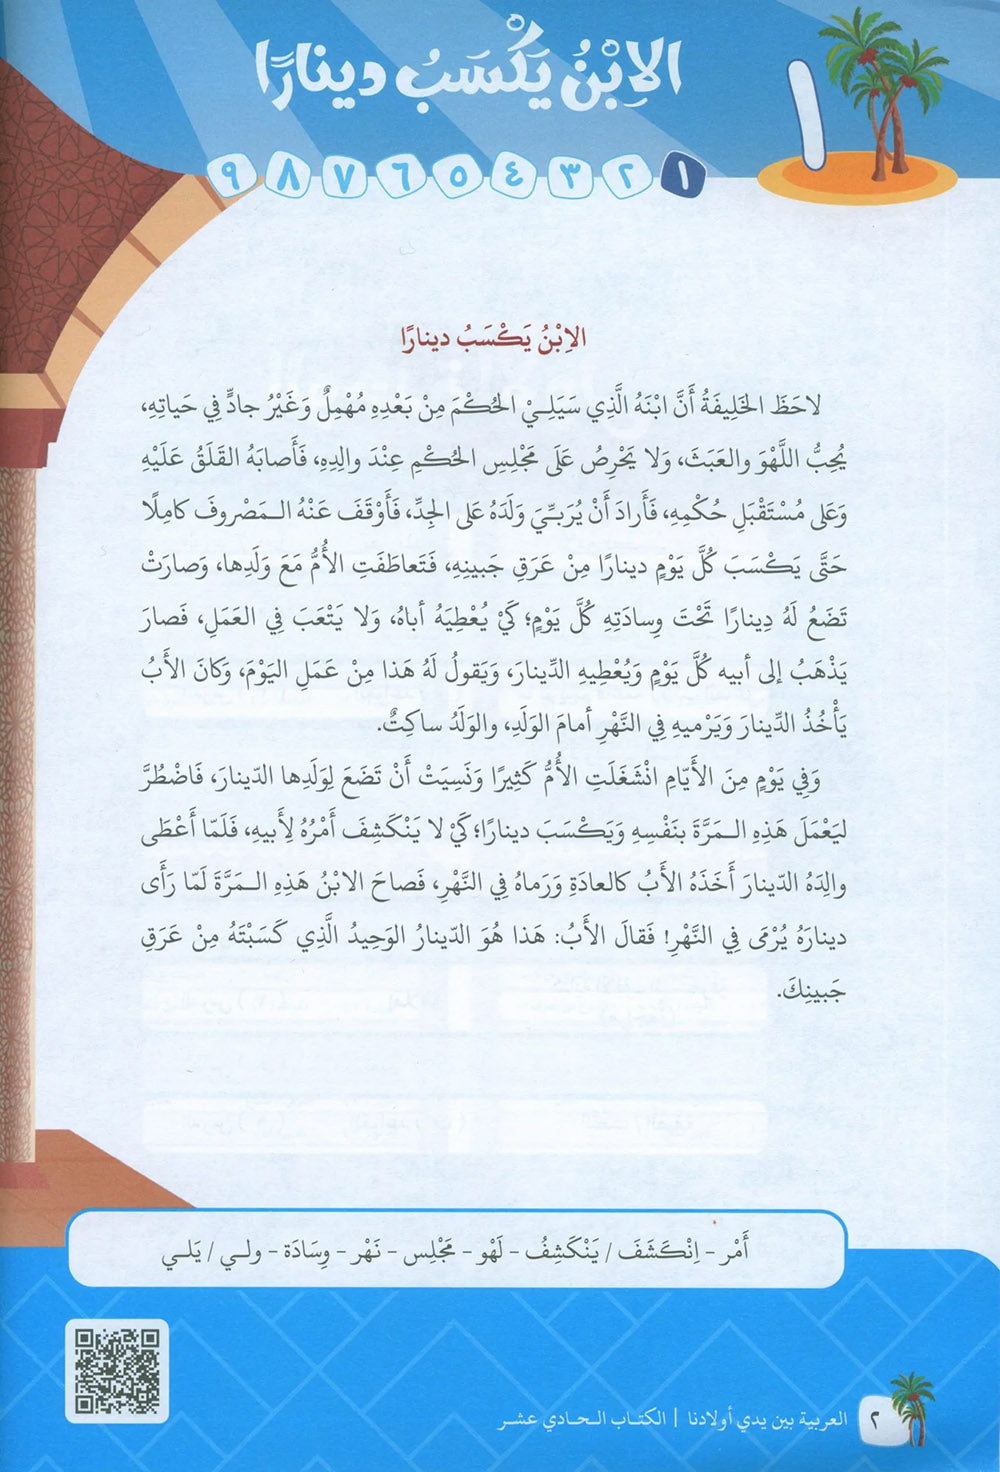 الاِبْنُ يَكْسَبُ دينارًا
١
١ ٢ ٣ ٤ ٥ ٦ ٧ ٨ ٩
الاِبْنُ يَكْسَبُ دينارًا
لاحَظَ الخَلِيفَةُ أَنَّ ابْنَهُ الَّذِي سَيَلِيْ الحُكْمَ مِنْ بَعْدِهِ مُهْمِلٌ وَغَيْرُ جادٍّ فِي حَياتِهِ،
يُحِبُّ اللَّهْوَ والعَبَثَ، وَلا يَحْرِصُ عَلَى مَجْلِسِ الحُكْمِ عِنْدَ والِدِهِ، فَأَصابَهُ القَلَقُ عَلَيْهِ
وَعَلى مُسْتَقْبَلِ حُكْمِهِ، فَأَرادَ أَنْ يُرَبِّيَ وَلَدَهُ عَلى الجِدِّ، فَأَوْقَفَ عَنْهُ المَصْروفَ كامِلًا
حَتَّى يَكْسَبَ كُلَّ يَوْمٍ دينارًا مِنْ عَرَقِ جَبينِهِ، فَتَعاطَفَتِ الأُمُّ مَعَ وَلَدِها، وَصارَتْ
تَضَعُ لَهُ دِينارًا تَحْتَ وِسادَتِهِ كُلَّ يَوْمٍ؛ كَيْ يُعْطِيَهُ أباهُ، وَلا يَتْعَبَ فِي العَمَلِ، فَصارَ
يَذْهَبُ إلى أبيه كُلَّ يَوْمٍ وَيُعْطِيهِ الدِّينارَ، وَيَقولُ لَهُ هَذا مِنْ عَمَلِ اليَوْمَ، وَكانَ الأَبُ
يَأْخُذُ الدِّينارَ وَيَرْميهِ فِي النَّهْرِ أمامَ الوَلَدِ، والوَلَدُ ساكِتٌ.
وَفِي يَوْمٍ مِنَ الأَيّامِ انْشَغَلَتِ الأُمُّ كَثِيرًا وَنَسِيَتْ أَنْ تَضَعَ لِوَلَدِها الدّينارَ، فَاضْطُرَّ
ليَعْمَلَ هَذِهِ المَرَّةَ بنَفْسِهِ وَيَكْسَبَ دينارًا؛ كَيْ لا يَنْكَشِفَ أَمْرُهُ لِأَبيهِ، فَلَمّا أَعْطَى
والِدَهُ الدّينارَ أَخَذَهُ الأَبُ كالعادَةِ وَرَماهُ فِي النَّهْرِ، فَصاحَ الابْنُ هَذِهِ المَرَّةَ لَمّا رَأَى
دينارَهُ يُرْمَى فِي النَّهْرِ! فَقالَ الأَبُ: هَذا هُوَ الدّينارُ الوَحِيدُ الَّذِي كَسَبْتَهُ مِنْ عَرَقِ
جَبينِكَ.
أَمْر - اِنْكَشَفَ / يَنْكَشِفُ - لَهْو - مَجْلِس - نَهْر - وِسَادَة - ولي / يَلي
٢ العربية بين يدي أولادنا | الكتاب الحادي عشر